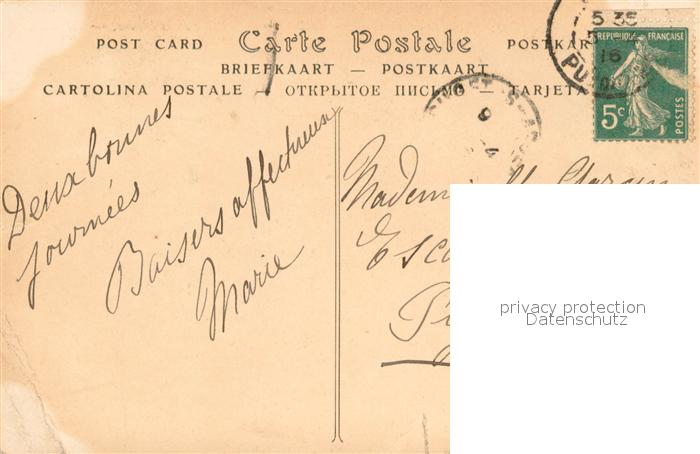 POST CARD Carte Postale POSTKAR
BRIEFKAART — POSTKAART
CARTOLINA POSTALE — ОТКРЫТОЕ ПИСЬМО — TARJETA
5 35
16
RÉPUBLIQUE FRANÇAISE
5c
POSTES
9
Deux bonnes
journées
Baisers affectueux
Marie
privacy protection
Datenschutz